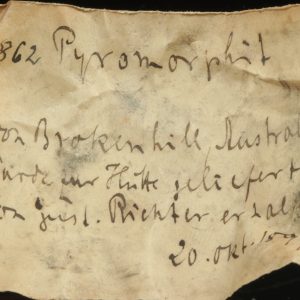 862 Pyromorphit
von Brokenhill, Austral
wurde zur Hütte geliefert
von Richter erhal
20. Okt.